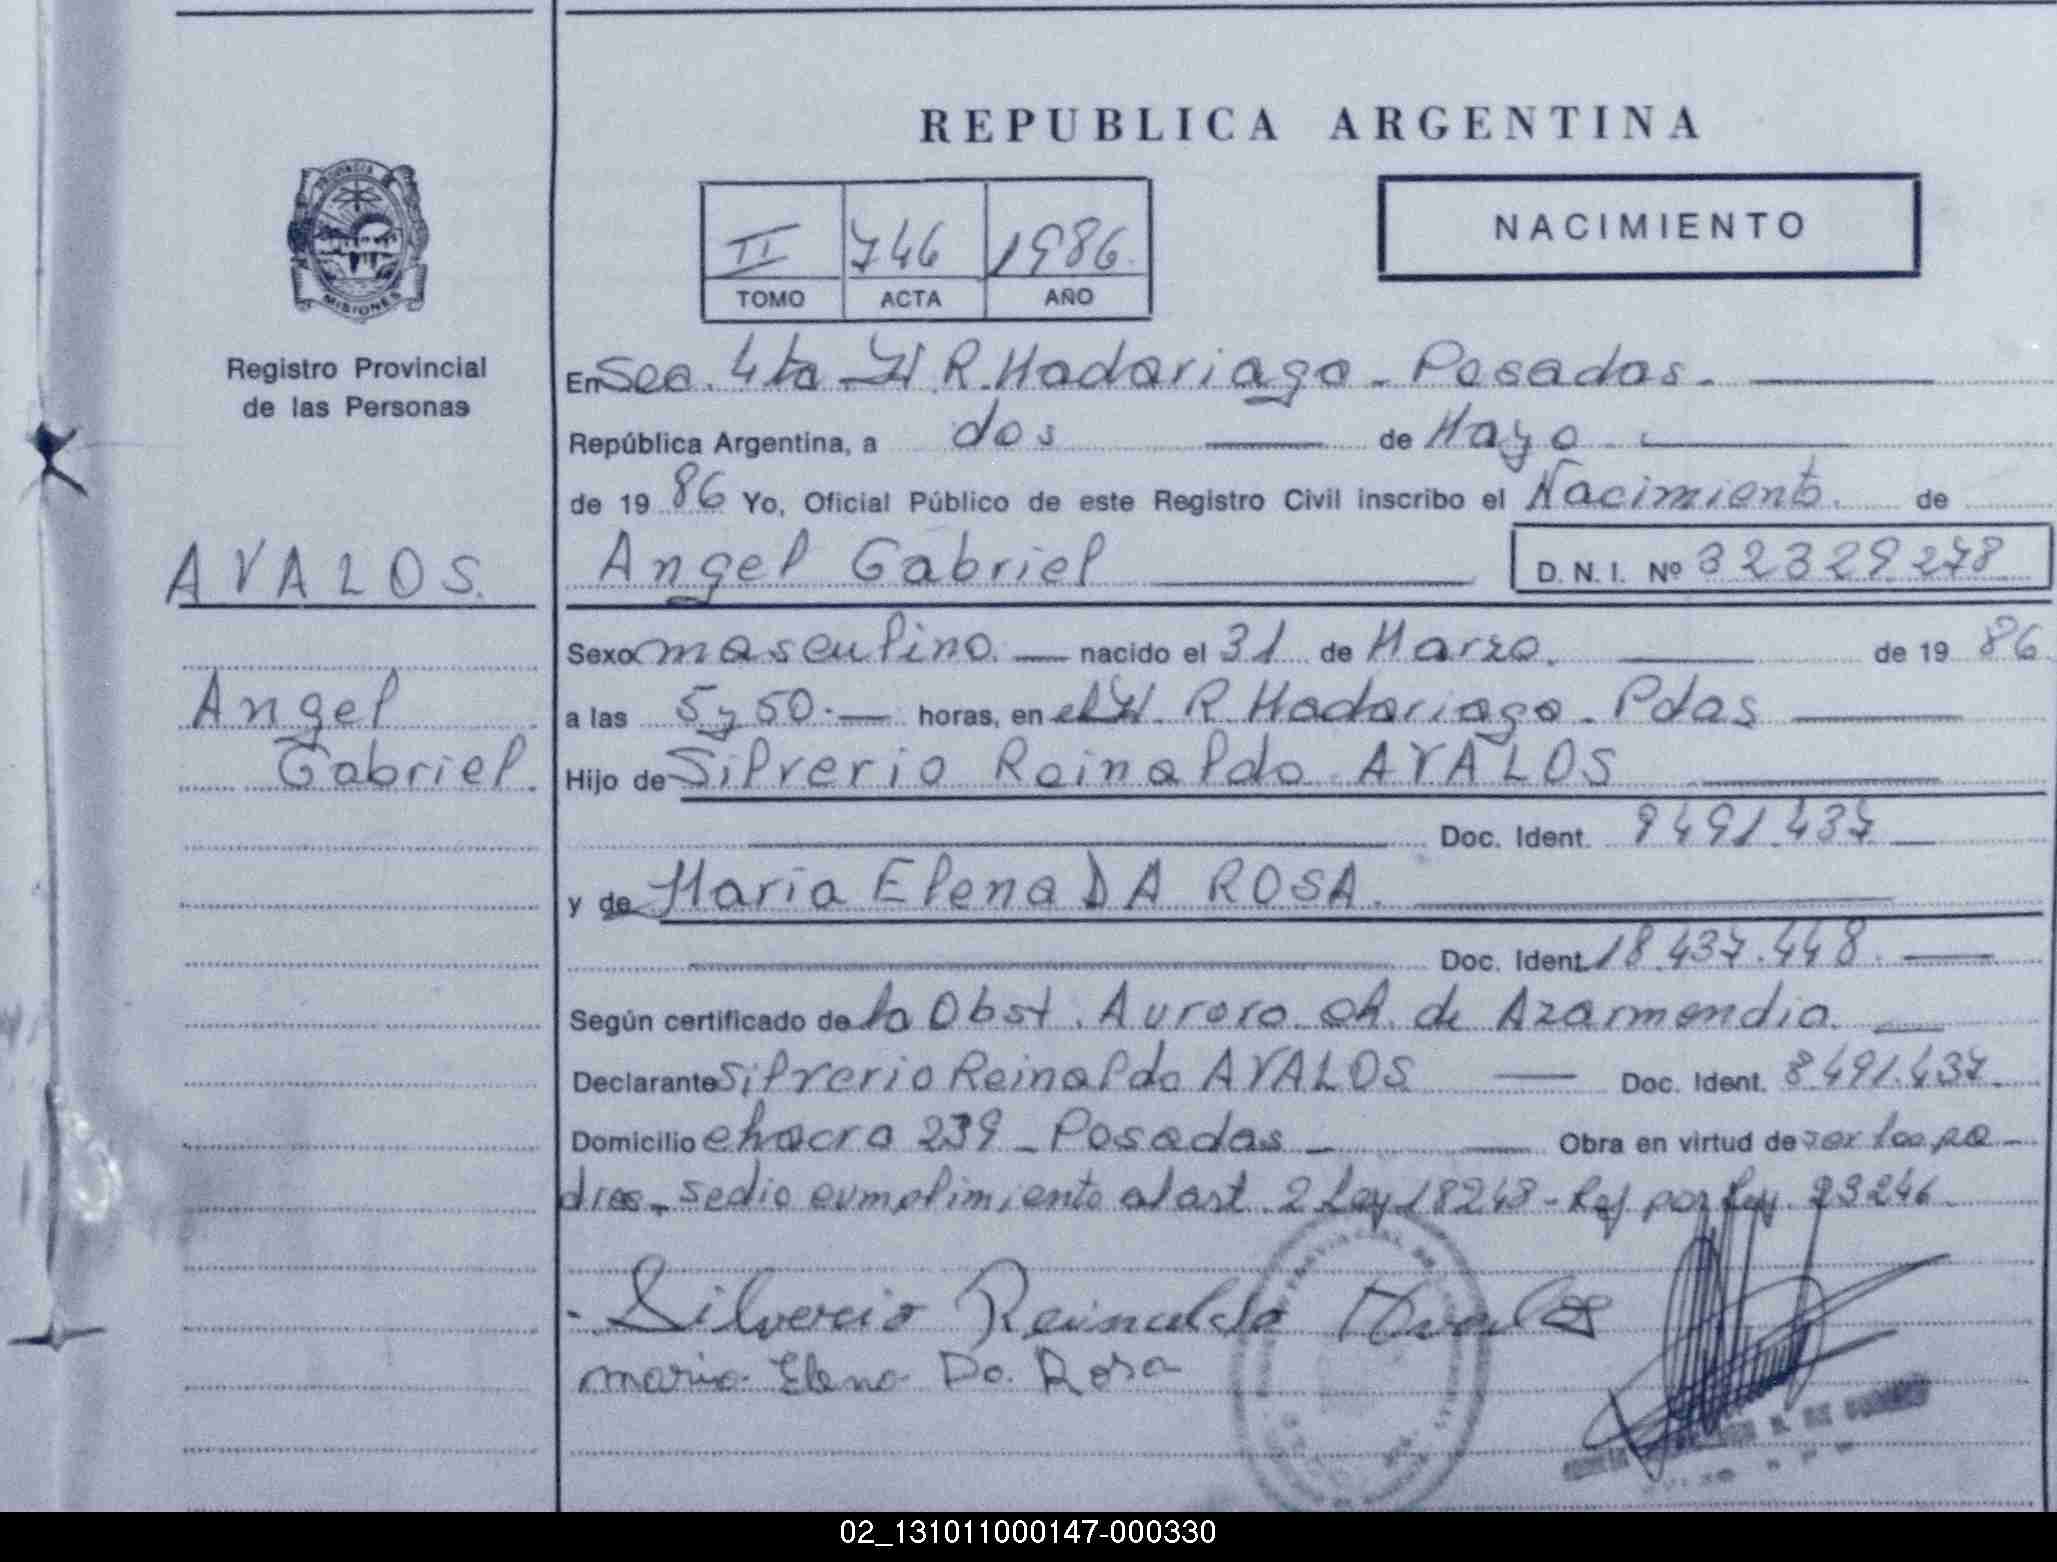 REPUBLICA ARGENTINA
NACIMIENTO
II 746 1986
TOMO ACTA AÑO
PROVINCIA DE MISIONES
Registro Provincial
de las Personas
AVALOS.
Angel
Gabriel.
En Sec. 4ta H. R. Madariaga - Posadas.
República Argentina, a dos de Mayo
de 19 86 Yo, Oficial Público de este Registro Civil inscribo el Nacimiento. de
Angel Gabriel D. N. I. Nº 32329278
Sexo masculino. nacido el 31 de Marzo. de 19 86
a las 5 y 50. horas, en el H. R. Madariaga - Pdas
Hijo de Silverio Reinaldo AVALOS
Doc. Ident. 8491.437
y de Maria Elena DA ROSA.
Doc. Ident. 18.437.448
Según certificado de la Obst. Aurora Ch. de Azarmendia.
Declarante Silverio Reinaldo AVALOS Doc. Ident. 8491.437.
Domicilio chacra 239 - Posadas - Obra en virtud de ser los pa
dres - se dio cumplimiento al art. 2 Ley 18248 - Ref por Ley 23246.
Silvercio Reinaldo Avalos
maria Elena Da Rosa
02_131011000147-000330